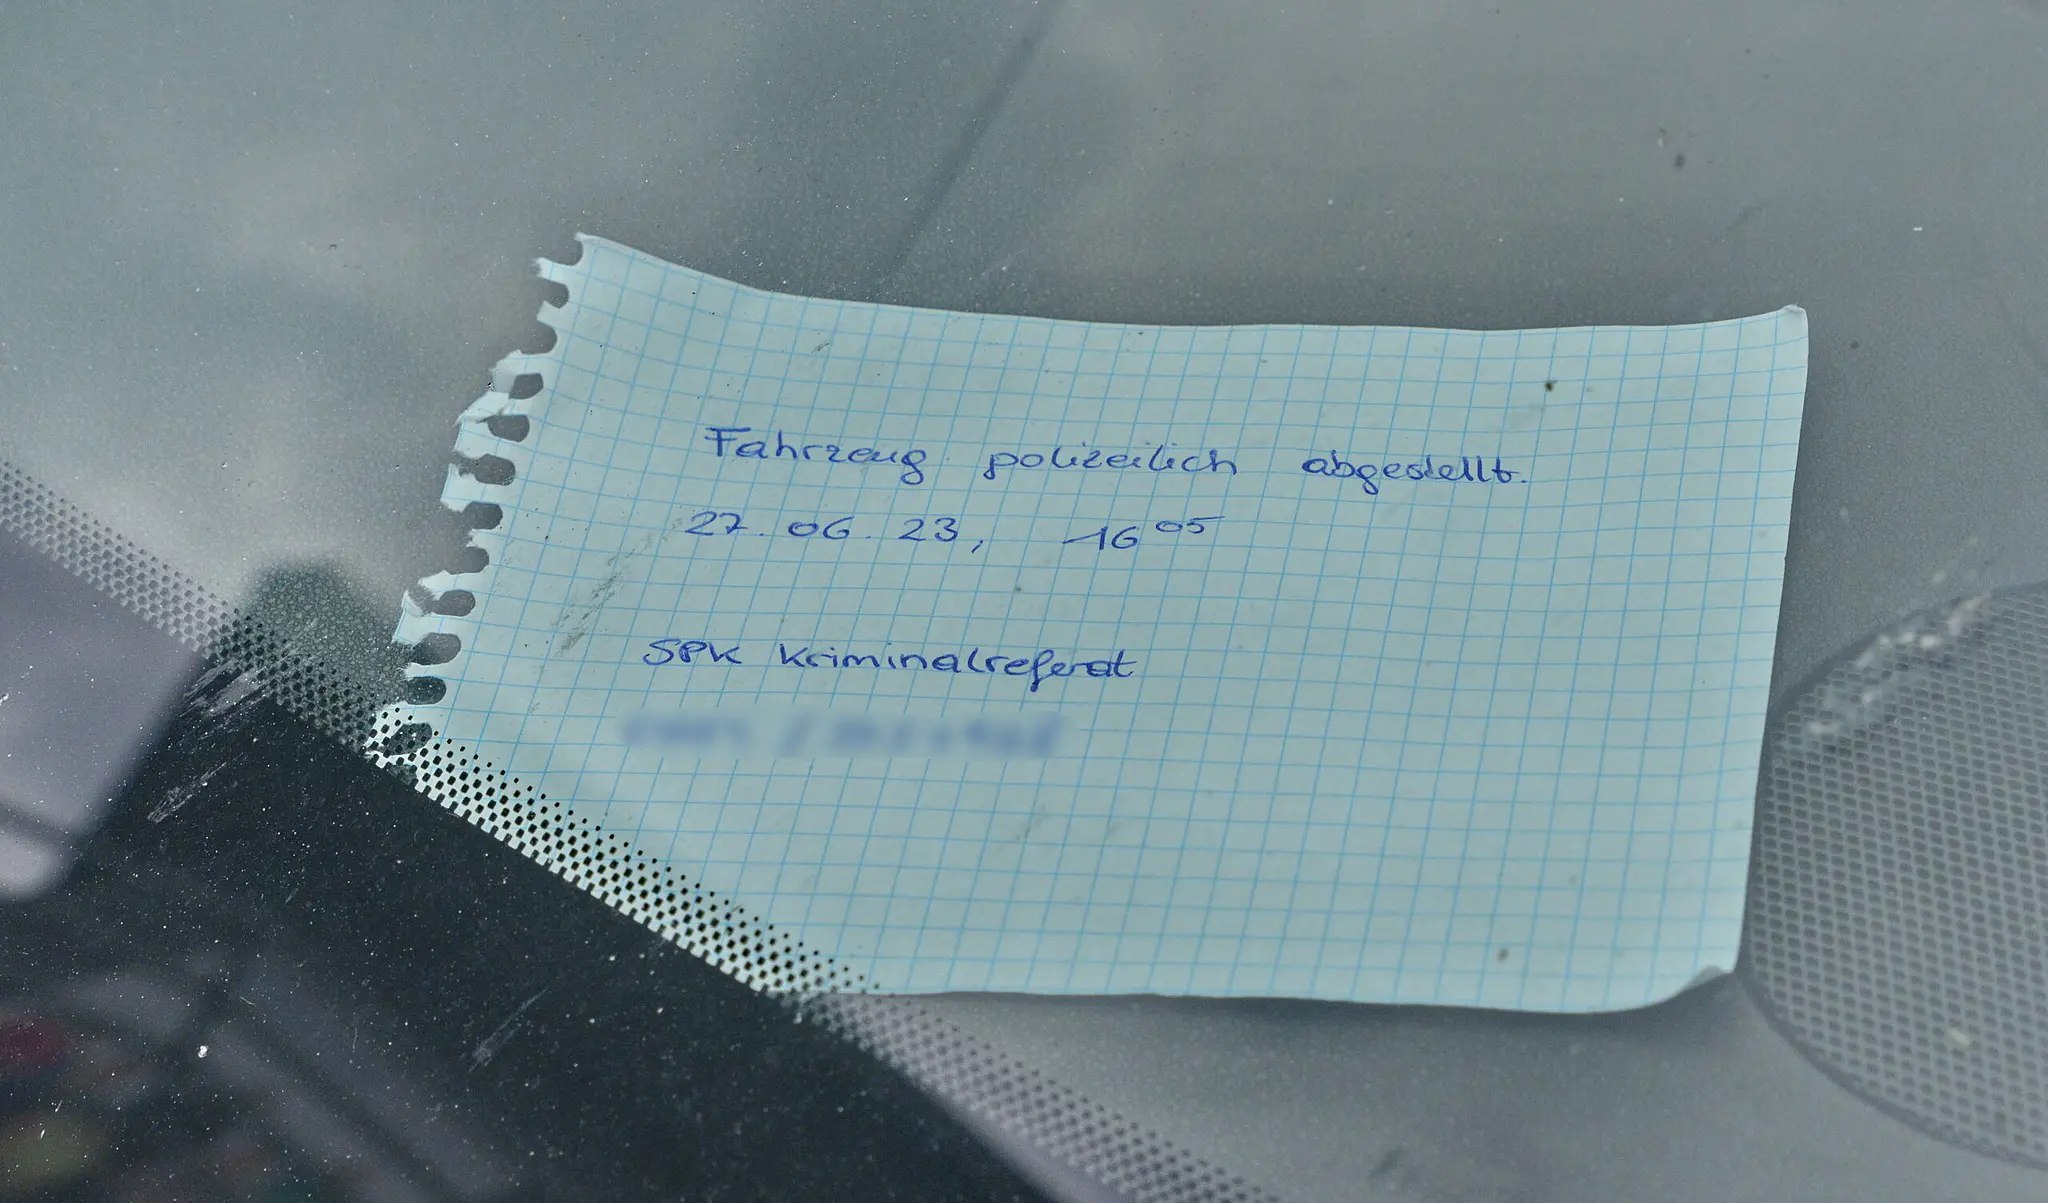 Fahrzeug polizeilich abgestellt.
27.06.23, 16 05
SPK Kriminalreferat